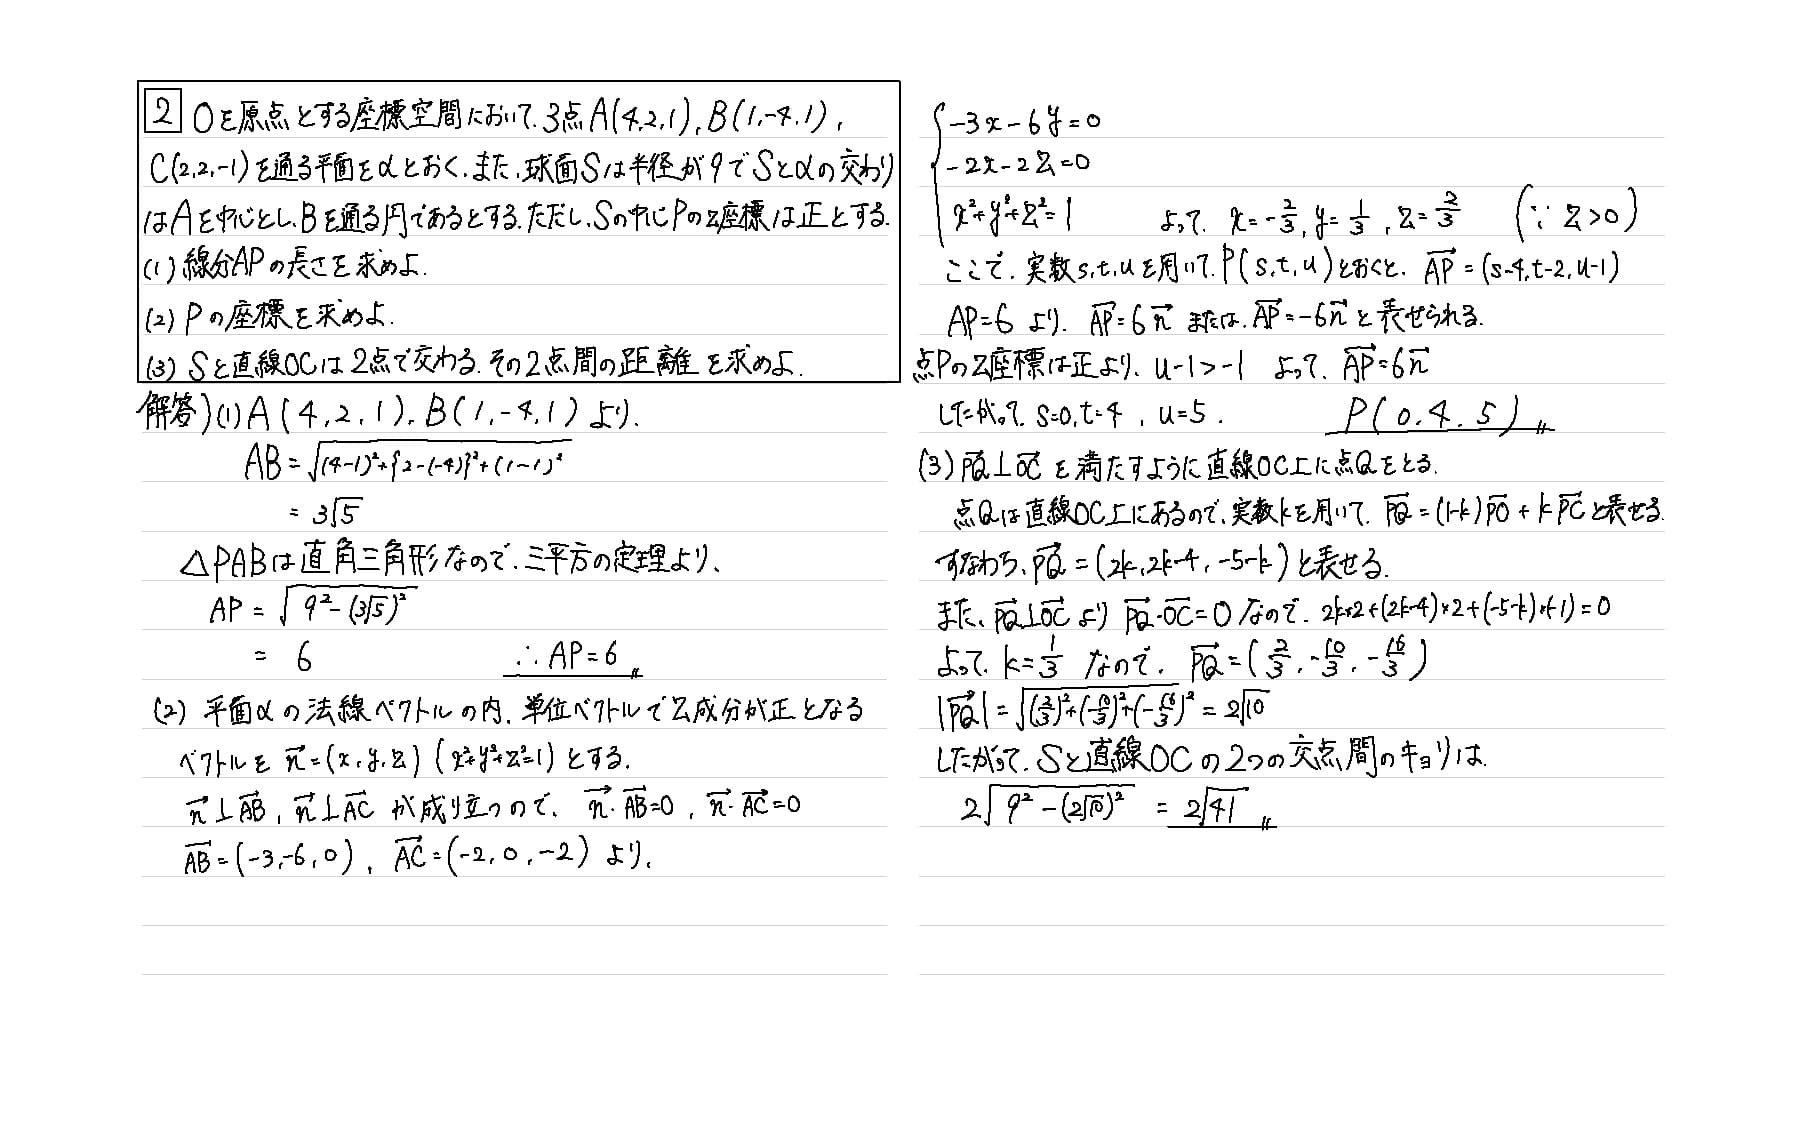 2 Oを原点とする座標空間において、3点A(4,2,1), B(1,-4,1),
C(2,2,-1)を通る平面をαとおく、また、球面Sは半径が9でSとαの交わり
はAを中心とし、Bを通る円であるとする。ただし、Sの中心Pのz座標は正とする。
(1) 線分APの長さを求めよ.
(2) Pの座標を求めよ.
(3) Sと直線OCは2点で交わる。その2点間の距離を求めよ.
解答)(1) A(4,2,1), B(1,-4,1)より、
AB=√(4-1)²+{2-(-4)}²+(1-1)²
= 3√5
△PABは直角三角形なので、三平方の定理より、
AP = √9²-(3√5)²
= 6 ∴AP=6〃
(2) 平面αの法線ベクトルの内、単位ベクトルでz成分が正となる
ベクトルを n→=(x,y,z) (x²+y²+z²=1)とする.
n→⊥AB→, n→⊥AC→ が成り立つので、 n→・AB→=0, n→・AC→=0
AB→=(-3,-6,0), AC→=(-2,0,-2) より、
{-3x-6y=0
-2x-2z=0
x²+y²+z²=1 よって、x=-2/3, y=1/3, z=2/3 (∵ z>0)
ここで、実数s,t,uを用いて、P(s,t,u)とおくと、AP→=(s-4,t-2,u-1)
AP=6より、AP→=6n→ または、AP→=-6n→と表せられる.
点Pのz座標は正より、u-1>-1 よって、AP→=6n→
したがって、s=0,t=4, u=5. P(0,4,5)〃
(3) PQ→⊥OC→を満たすように直線OC上に点Qをとる.
点Qは直線OC上にあるので、実数kを用いて、PQ→=(1-k)PO→+kPC→と表せる.
すなわち、PQ→=(2k,2k-4,-5-k)と表せる.
また、PQ→⊥OC→よりPQ→・OC→=0なので、2k×2+(2k-4)×2+(-5-k)×(-1)=0
よって、k=1/3 なので、PQ→=(2/3,-10/3,-16/3)
|PQ→|=√(2/3)²+(-10/3)²+(-16/3)²=2√10
したがって、Sと直線OCの2つの交点間のキョリは、
2√9²-(2√10)² = 2√41〃